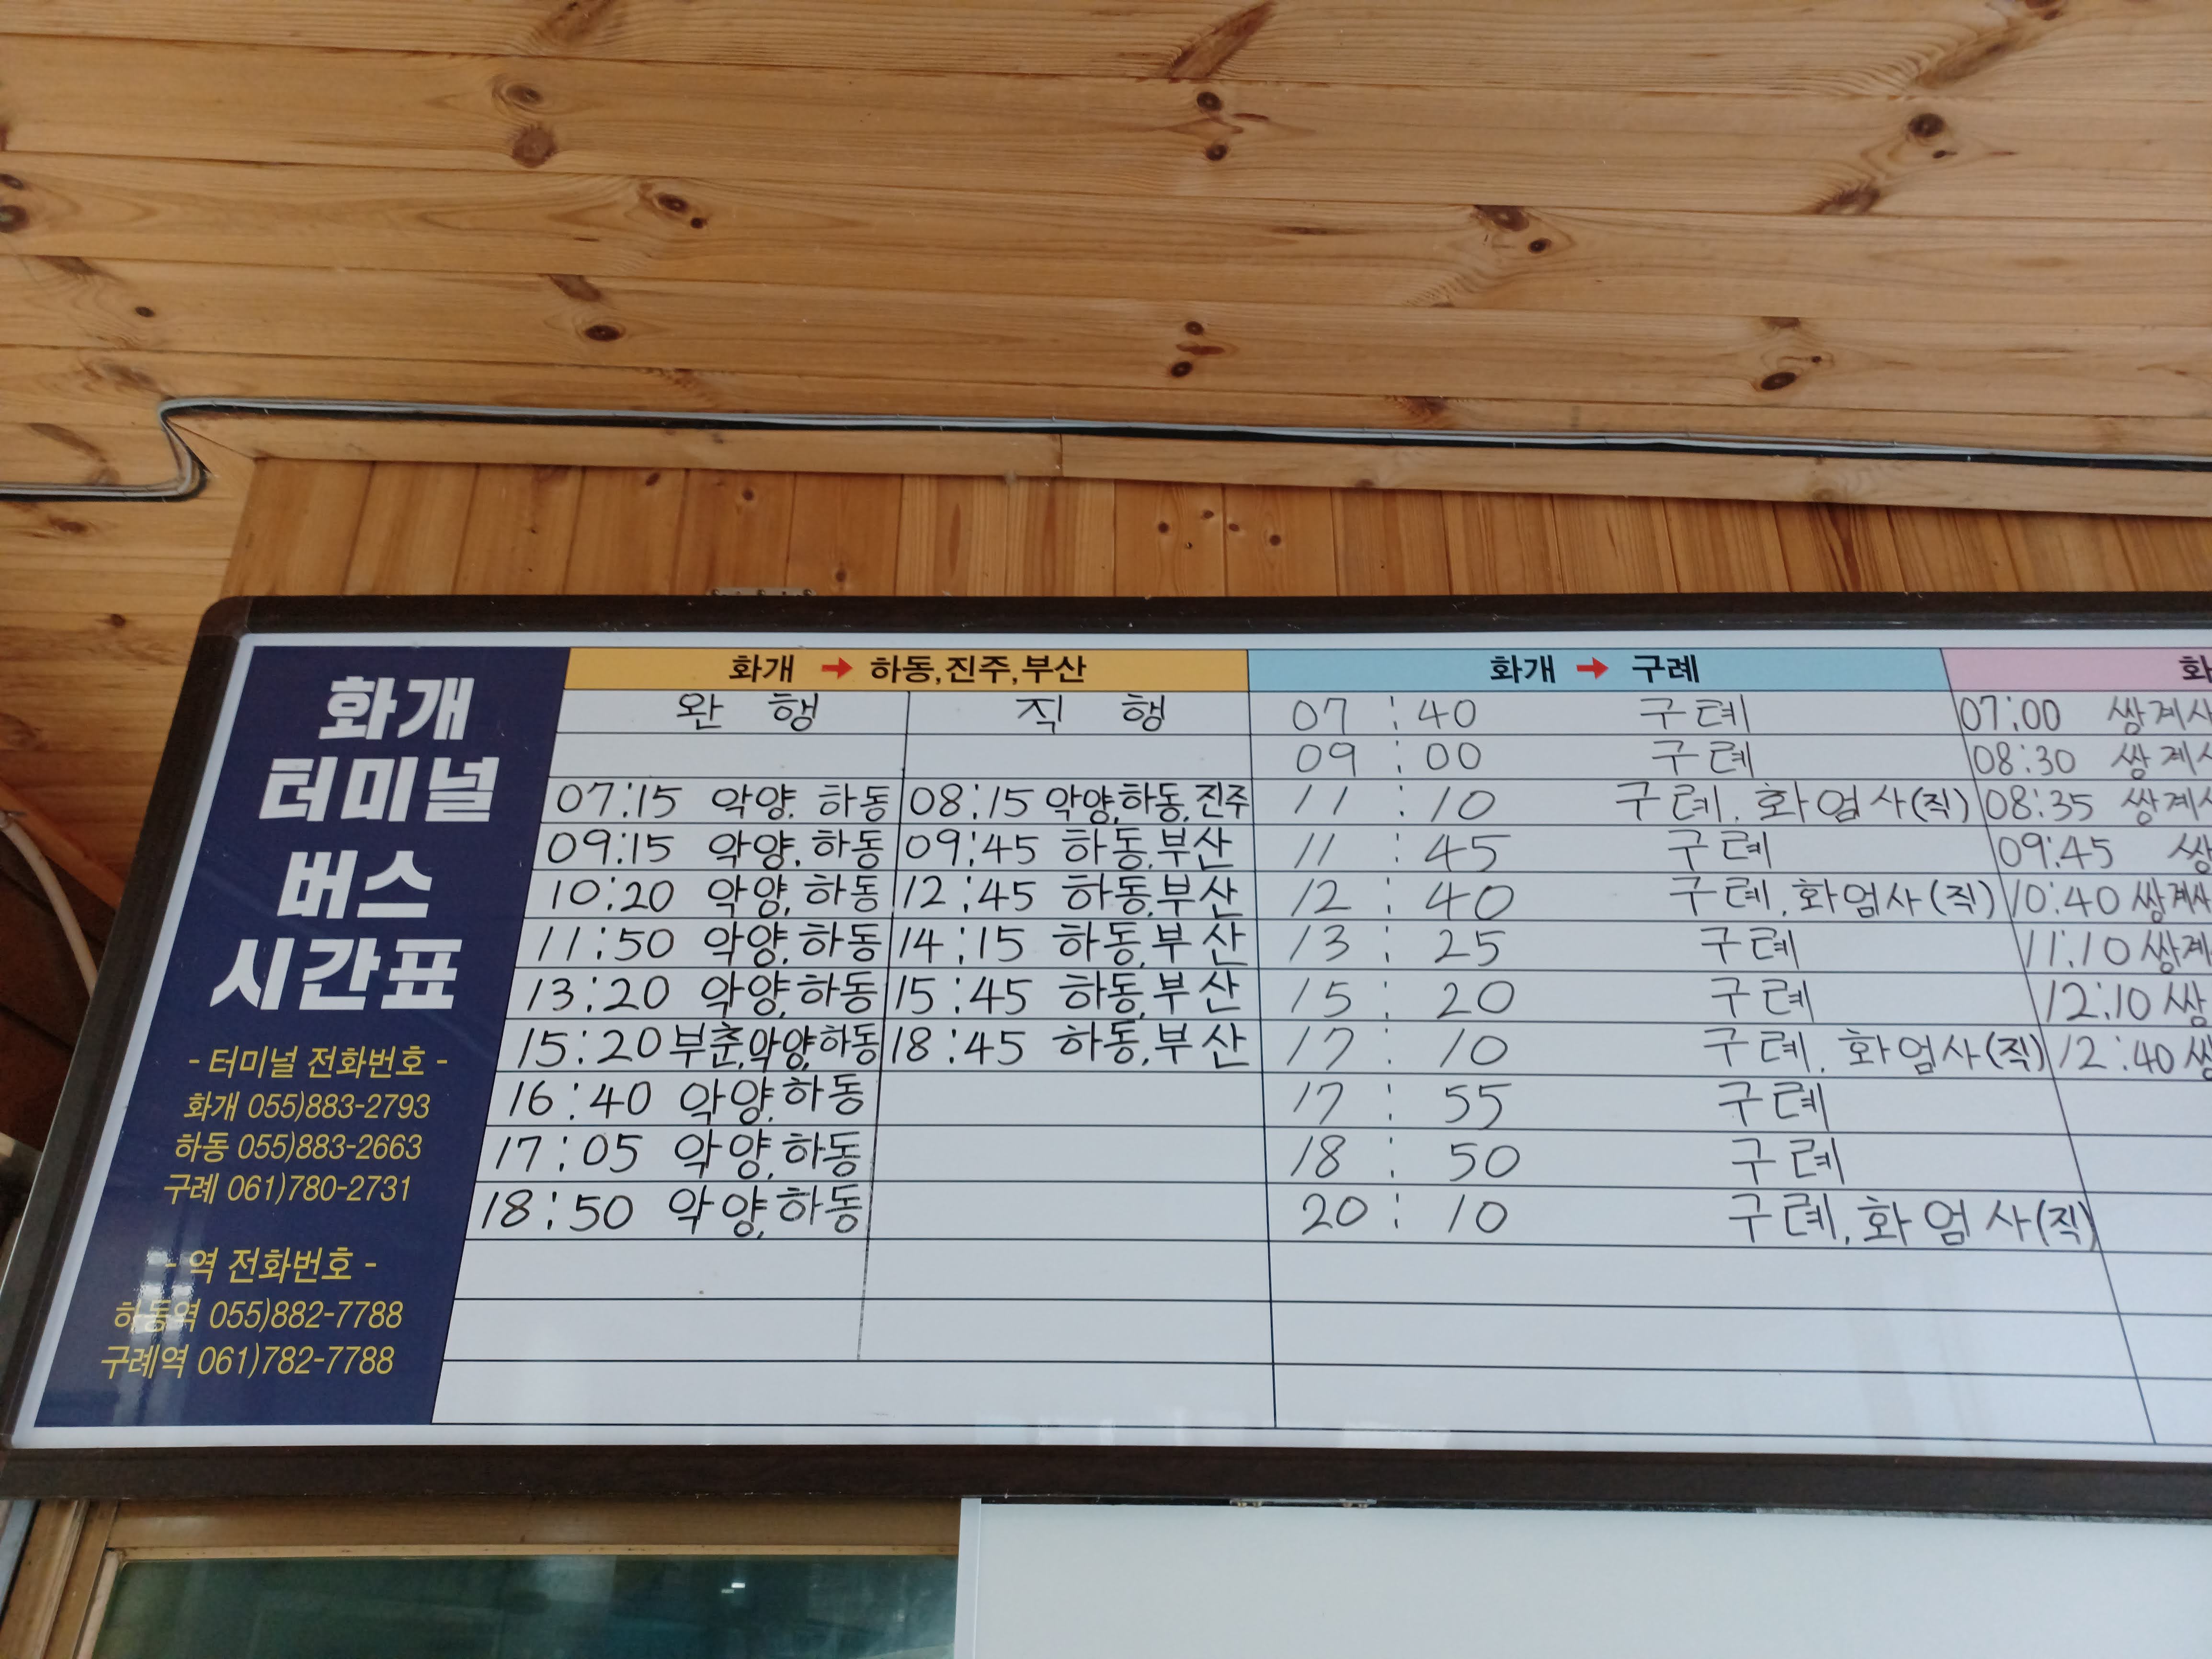 화개
터미널
버스
시간표
- 터미널 전화번호 -
화개 055)883-2793
하동 055)883-2663
구례 061)780-2731
- 역 전화번호 -
하동역 055)882-7788
구례역 061)782-7788
화개 → 하동,진주,부산
완 행
07:15 악양. 하동
09:15 악양. 하동
10:20 악양. 하동
11:50 악양. 하동
13:20 악양. 하동
15:20 부춘.악양.하동
16:40 악양. 하동
17:05 악양. 하동
18:50 악양. 하동
직 행
08:15 악양.하동.진주
09:45 하동.부산
12:45 하동.부산
14:15 하동.부산
15:45 하동.부산
18:45 하동.부산
화개 → 구례
07:40 구례
09:00 구례
11:10 구례. 화엄사(직)
11:45 구례
12:40 구례. 화엄사(직)
13:25 구례
15:20 구례
17:10 구례. 화엄사(직)
17:55 구례
18:50 구례
20:10 구례. 화엄사(직)
07:00 쌍계사
08:30 쌍계사
08:35 쌍계사
09:45 쌍
10:40 쌍계사
11:10 쌍계
12:10 쌍
12:40 쌍